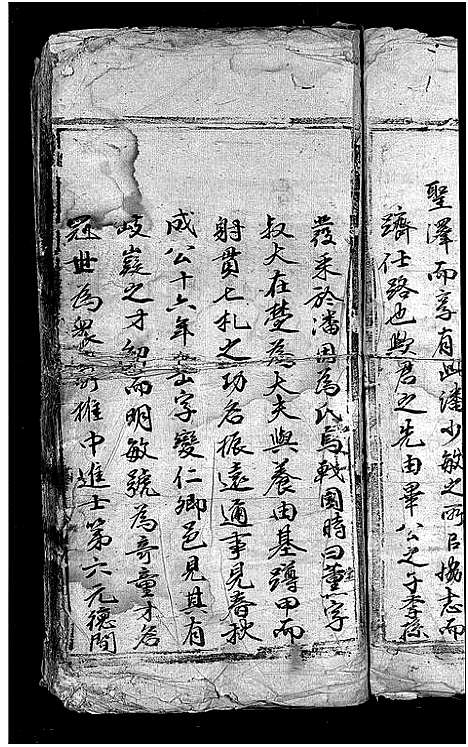 聖澤而享有此潘少敏之所以揚志而
躋仕路也歟君之先由畢公之子季孫
發采於潘因為氏焉戰國時曰董字
叔大在楚為大夫與養由基蹲甲而
射貫七札之功名振遠通事見春秋
成公十六年岳字變仁卿邑見且有
岐嶷之才幼而明敏號為奇童才名
冠世為衆所推中進士第六元德間